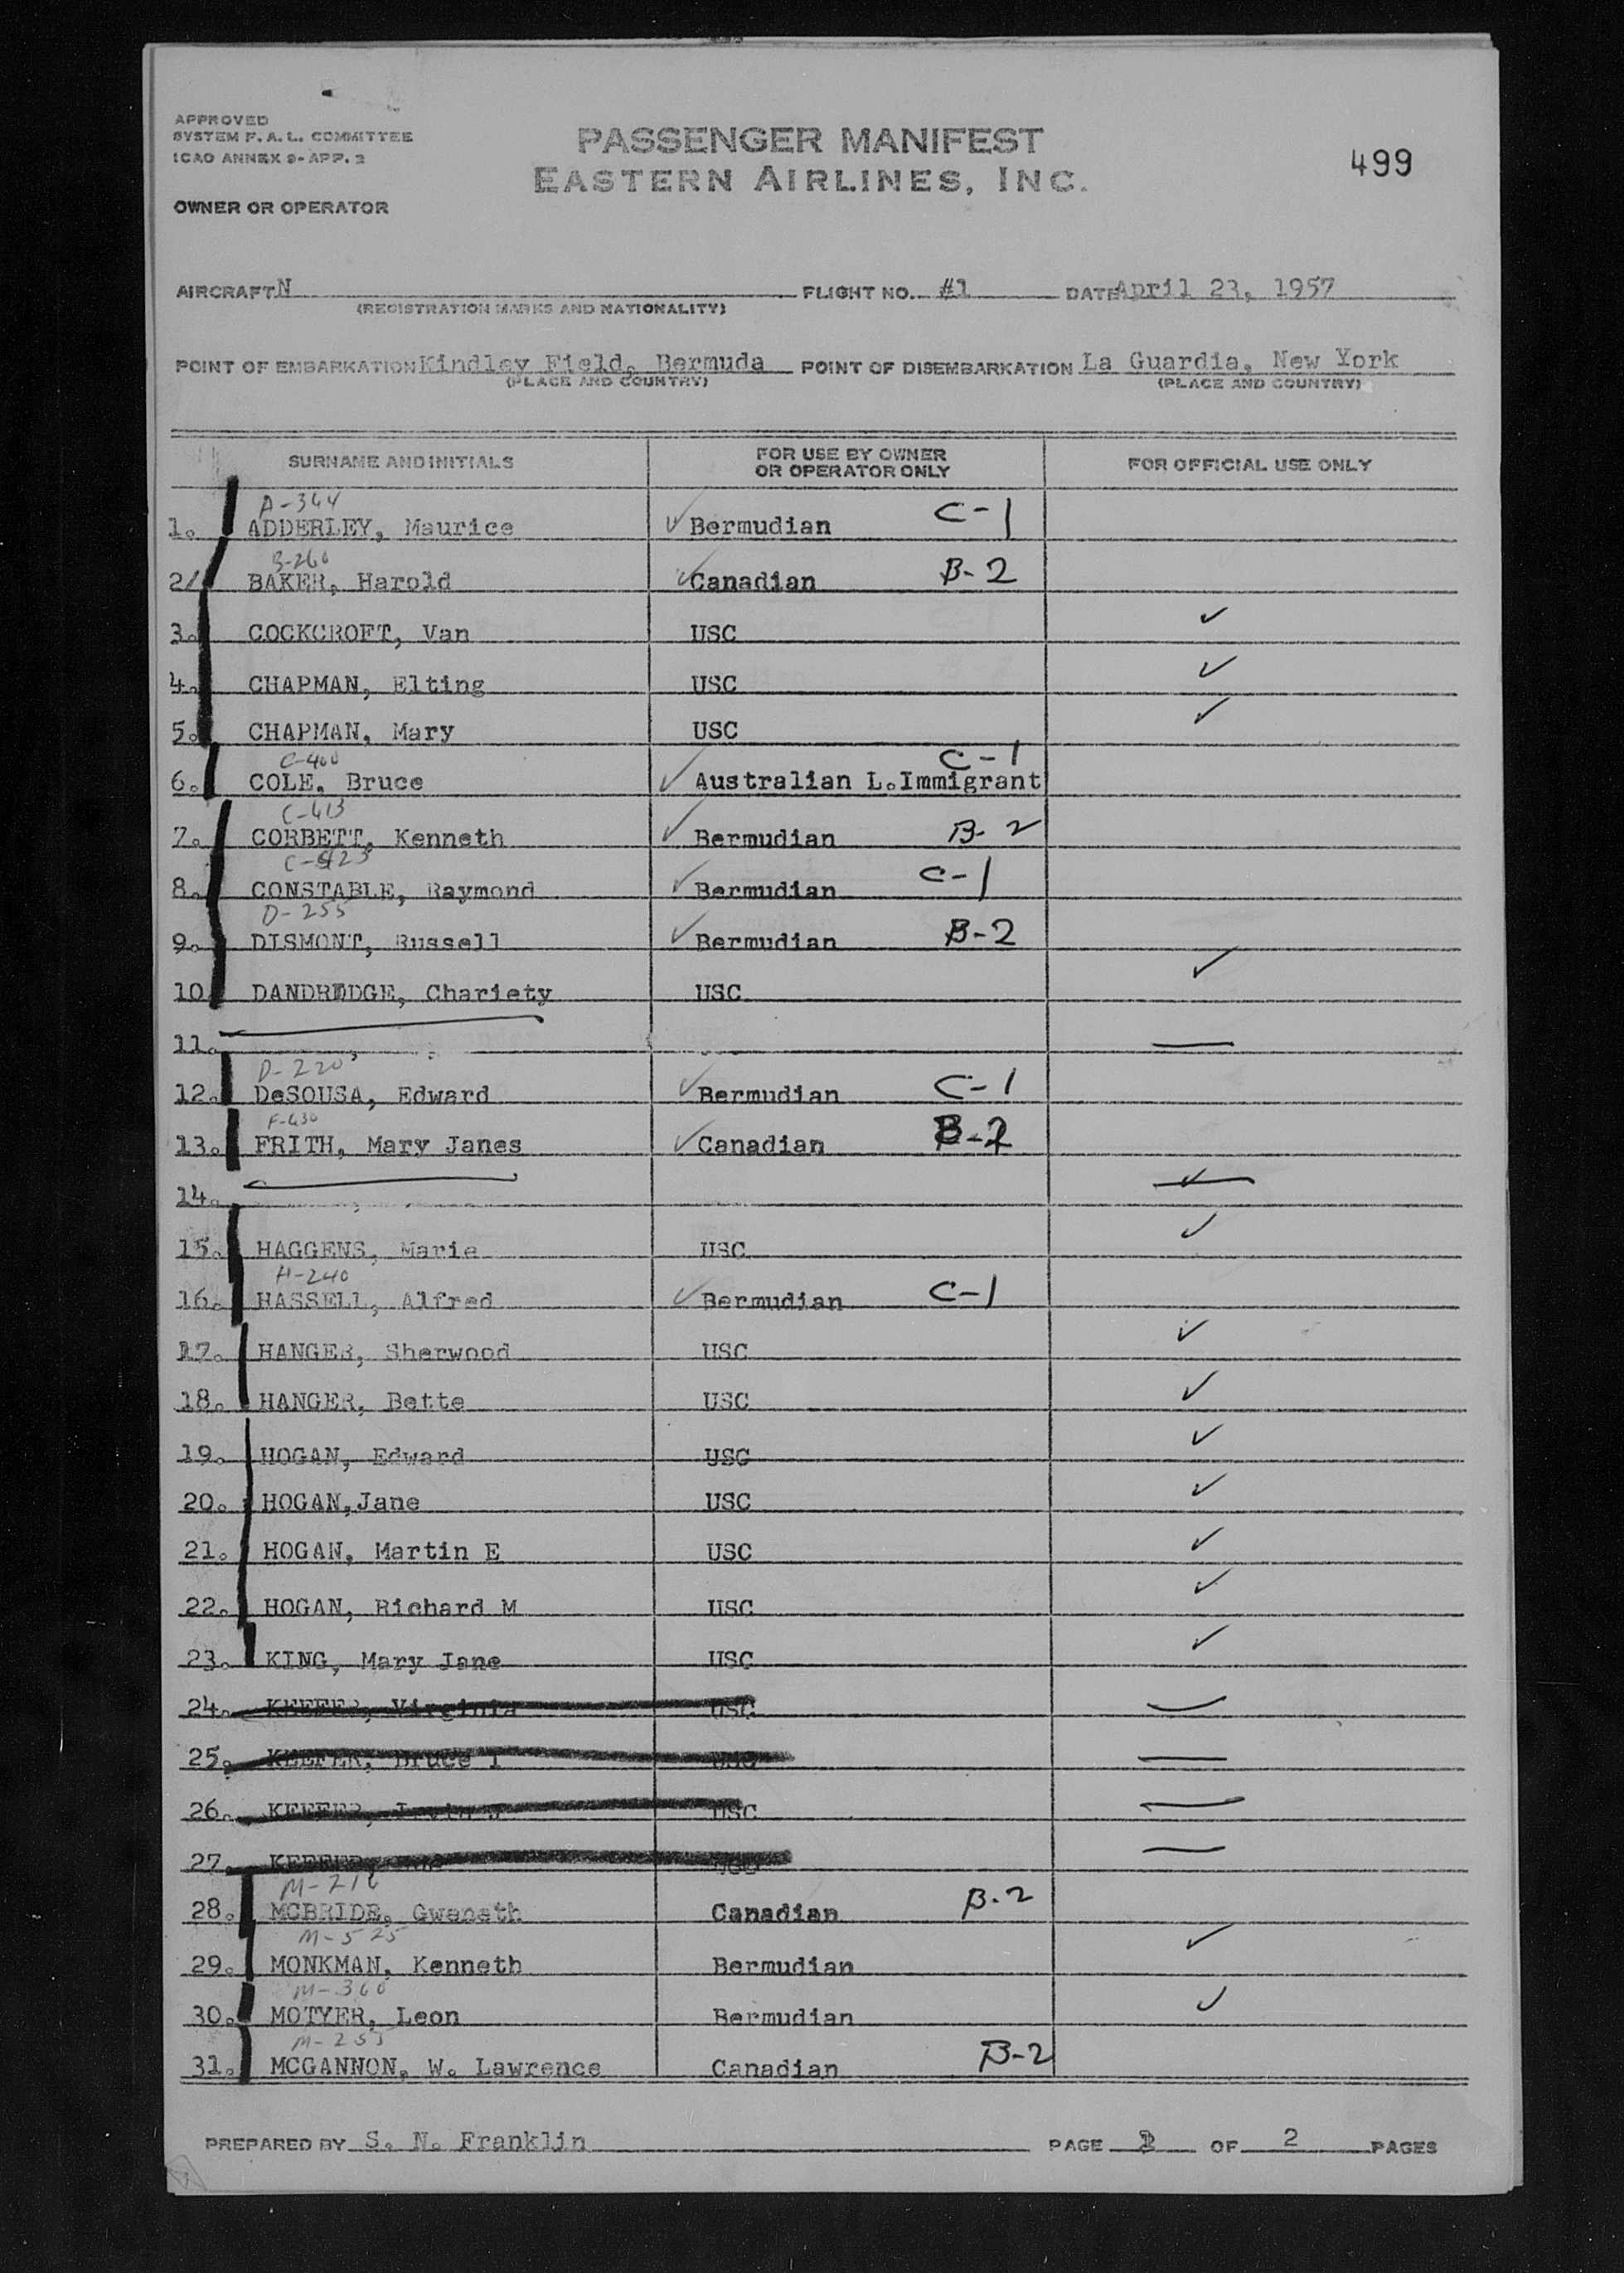 APPROVED
SYSTEM F. A. L. COMMITTEE
ICAO ANNEX 9- APP. 2
PASSENGER MANIFEST
EASTERN AIRLINES, INC.
499
OWNER OR OPERATOR
AIRCRAFT N FLIGHT NO. #1 DATE April 23, 1957
(REGISTRATION MARKS AND NATIONALITY)
POINT OF EMBARKATION Kindley Field, Bermuda POINT OF DISEMBARKATION La Guardia, New York
(PLACE AND COUNTRY) (PLACE AND COUNTRY)
SURNAME AND INITIALS FOR USE BY OWNER OR OPERATOR ONLY FOR OFFICIAL USE ONLY
A-364
1. ADDERLEY, Maurice ✓ Bermudian C-1
B-260
2/ BAKER, Harold ✓ Canadian B-2
3. COCKCROFT, Van USC ✓
4. CHAPMAN, Elting USC ✓
5. CHAPMAN, Mary USC ✓
C-400
6. COLE, Bruce ✓ Australian L.Immigrant C-1
C-613
7. CORBETT, Kenneth ✓ Bermudian B-2
8. CONSTABLE, Raymond ✓ Bermudian C-1
D-255
9. DISMONT, Russell ✓ Bermudian B-2
10. DANDRIDGE, Chariety USC ✓
11.
D-220
12. DeSOUSA, Edward ✓ Bermudian C-1
F-630
13. FRITH, Mary Janes ✓ Canadian B-2
14.
15. HAGGENS, Marie USC ✓
H-240
16. HASSELL, Alfred ✓ Bermudian C-1
17. HANGER, Sherwood USC ✓
18. HANGER, Bette USC ✓
19. HOGAN, Edward USC ✓
20. HOGAN,Jane USC ✓
21. HOGAN, Martin E USC ✓
22. HOGAN, Richard M USC ✓
23. KING, Mary Jane USC ✓
24. KEEFER, Virginia USC
25. KEEFER, Bruce T USC
26. KEEFER, USC
27. KEEFER,
M-216
28. MCBRIDE, Gweneth Canadian B-2
M-525
29. MONKMAN, Kenneth Bermudian ✓
M-360
30. MOTYER, Leon Bermudian ✓
M-255
31. MCGANNON, W. Lawrence Canadian B-2
PREPARED BY S. N. Franklin PAGE OF 2 PAGES